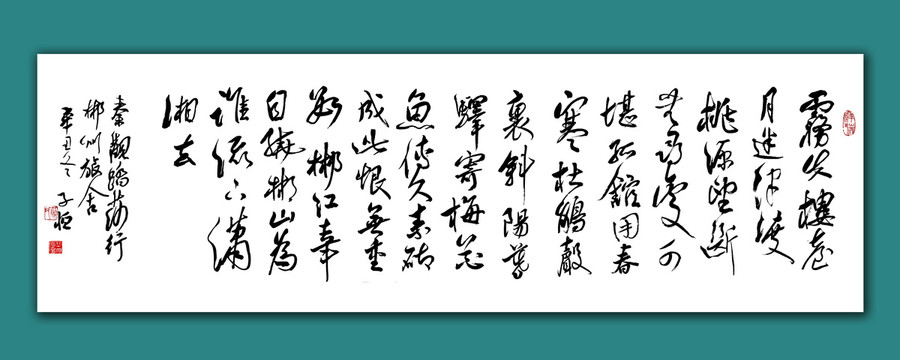 霧失樓臺
月迷津渡
桃源望斷
無尋處可
堪孤館閉春
寒杜鵑聲
裏斜陽暮
驛寄梅花
魚傳尺素砌
成此恨無重
數郴江幸
自繞郴山為
誰流下瀟
湘去
秦觀踏莎行
郴州旅舍
辛丑冬子恒